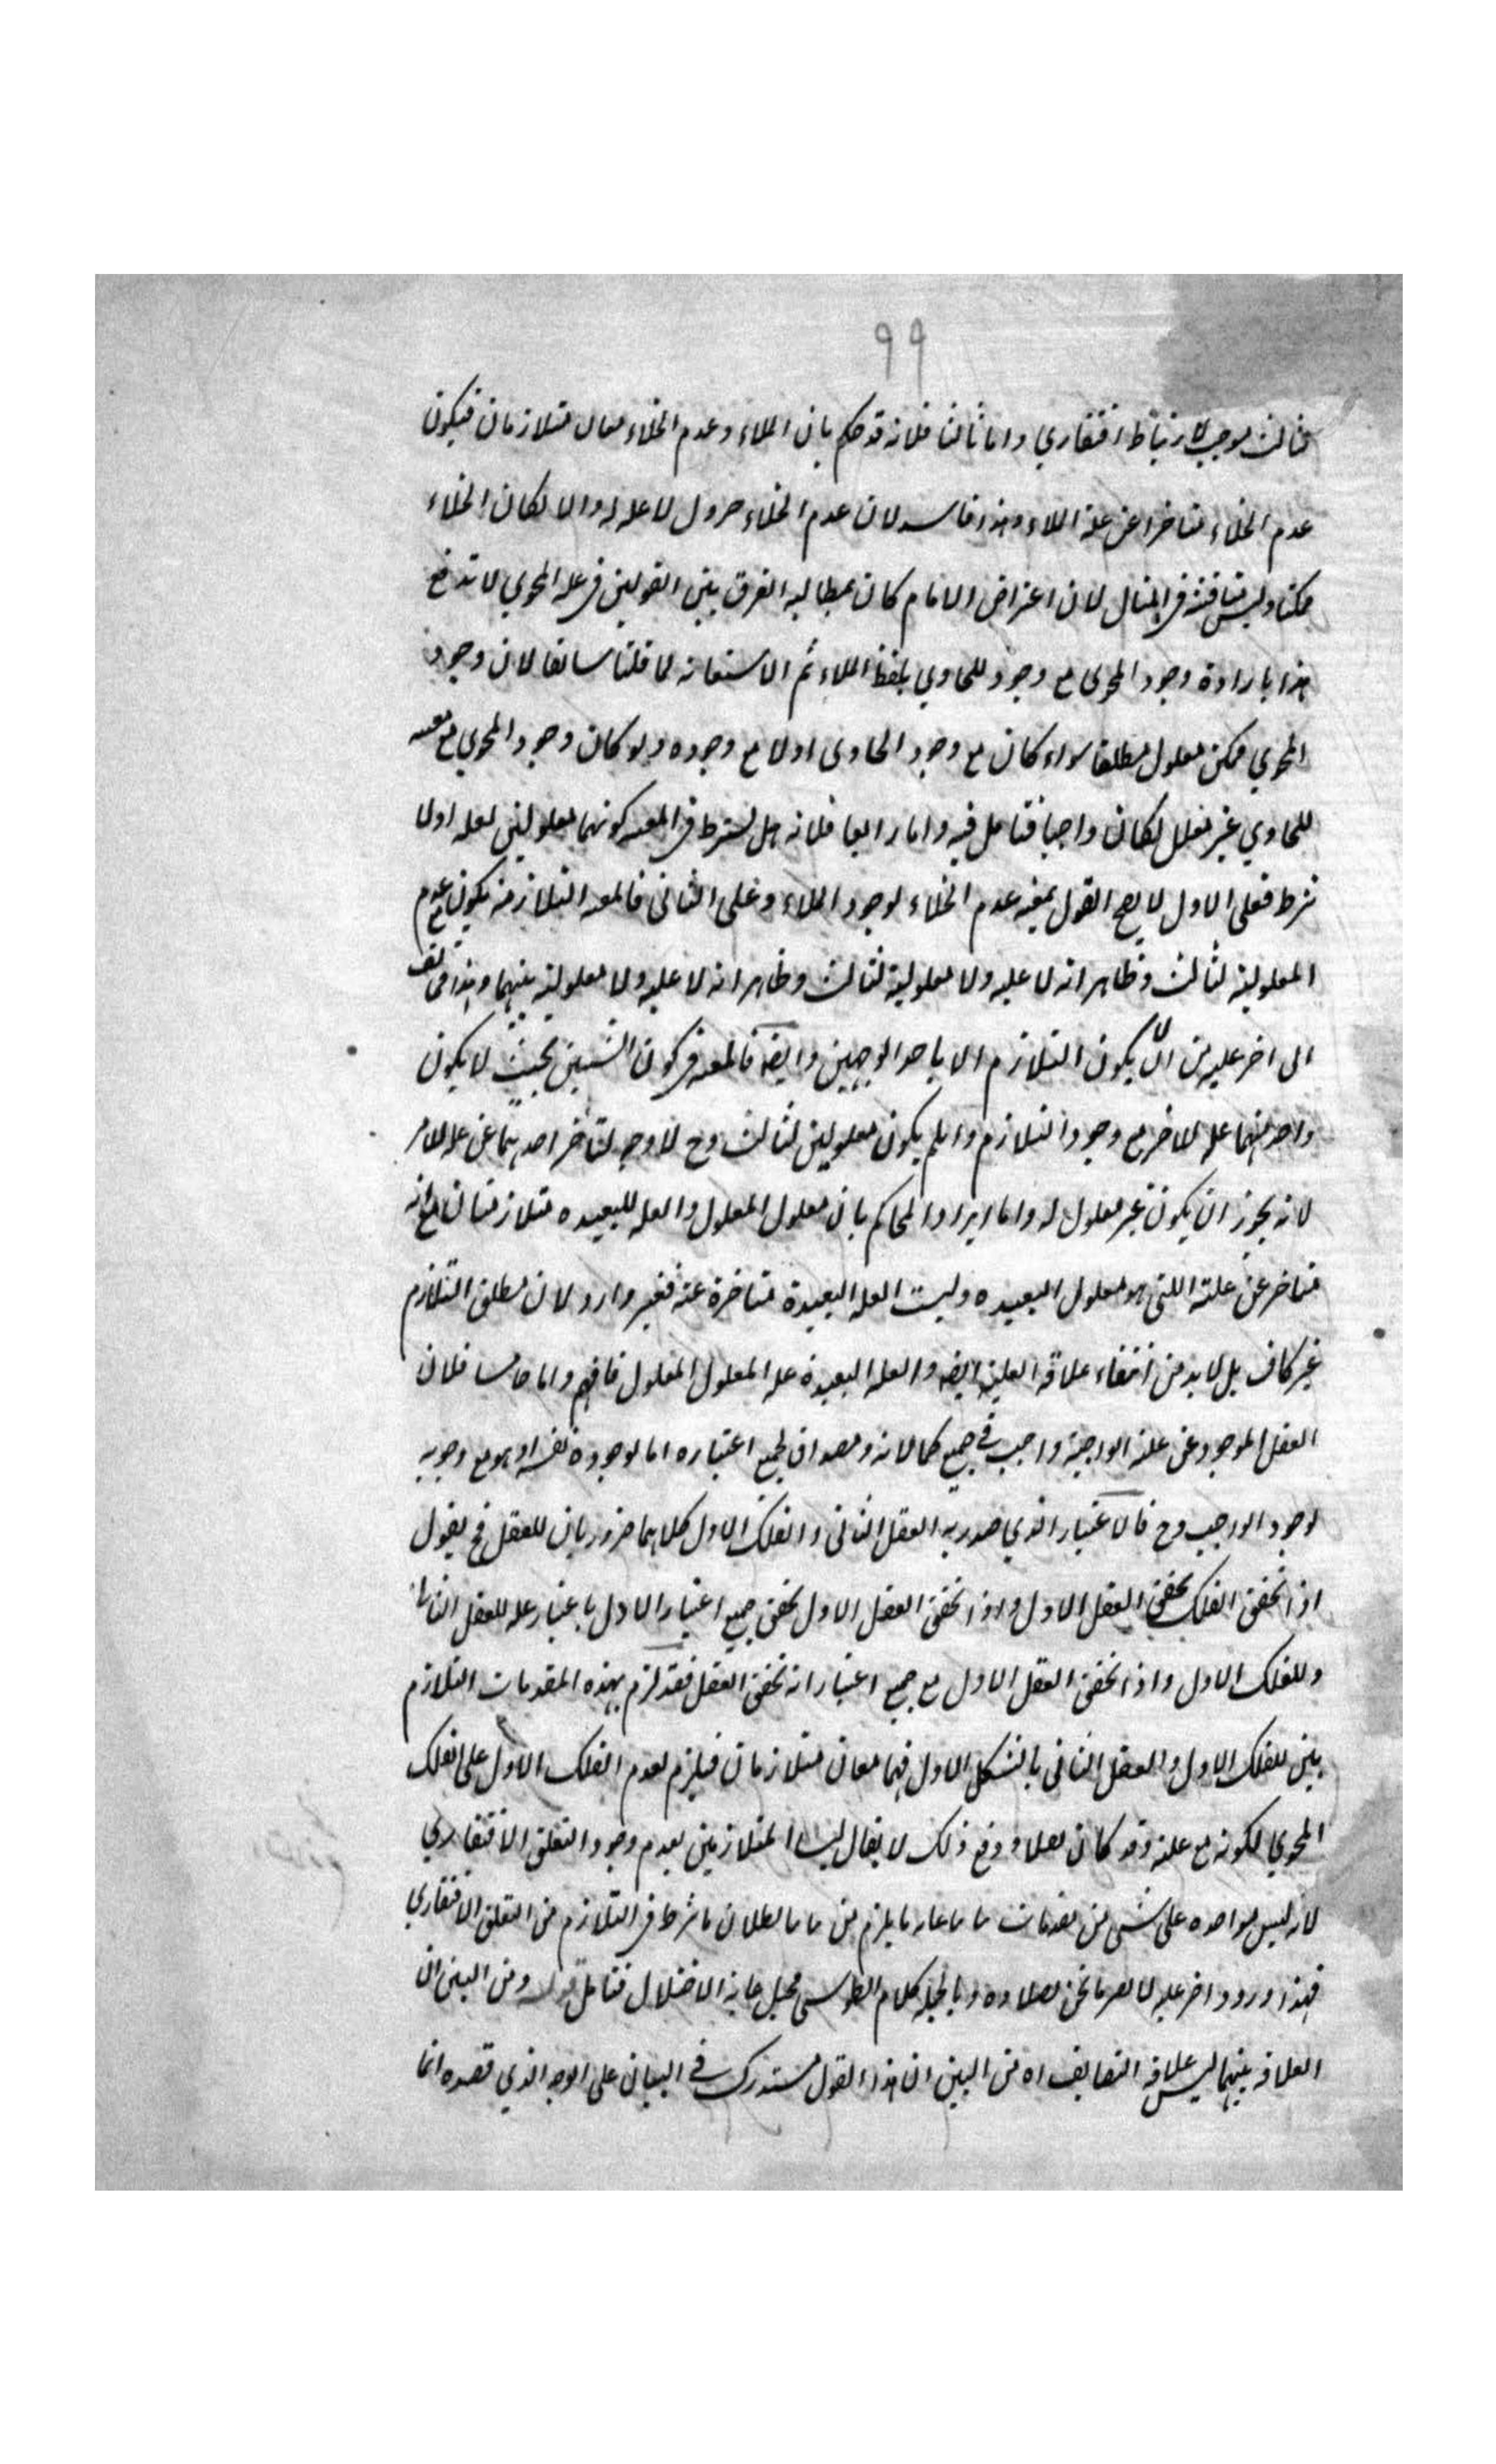 ٩٩
ثالث موجب لارتباط افتقاري واما ثالثا فلانه قد حكم بان الملاء وعدم الخلاء معان متلازمان فيكون
عدم الخلاء متاخرا عن علة الملاء وهذا فاسد لان عدم الخلاء ضروري لا علة له والا لكان الخلاء
ممكنا وليس مناقشة في المثال لان اعتراض الامام كان بمطالبه الفرق بين القولين في علة المحوي لا تدفع
هذا بارادة وجود المحوى مع وجود الحاوي بلفظ الملاء ثم الاستعانه لما قلنا سابقا لان وجود
المحوي ممكن معلول مطلقا سواء كان مع وجود الحاوى اولا مع وجوده ولو كان وجود المحوي مع معيته
للحاوي غير معلل لكان واجبا فتامل فيه واما رابعا فلانه هل يشترط في المعيه كونهما معلولين لعله اولا
يشترط فعلى الاول لا يصح القول بمعيه عدم الخلاء لوجود الملاء وعلى الثانى فالمعيه التلازميه يكون مع عدم
المعلولية لثالث وظاهر انه لا عليه ولا معلولية لثالث وظاهر انه لا عليه ولا معلولية بينهما وهذا
الى اخر عليه من ان لا يكون التلازم الا باحد الوجهين وايضه فالمعيه في كون الشيئين بحيث لا يكون
واحد منهما علة للاخر مع وجود التلازم وان لم يكون معلولين لثالث وح لا وجه لتاخر احدهما عن علة الاخر
لانه يجوز ان يكون غير معلول له واما ايراد المحاكم بان معلول المعلول والعله البعيده متلازمتان مع انه
متاخر عن علته اللتى هو معلول البعيده وليست العله البعيدة متاخرة عنه فغير وارد لان مطلق التلازم
غير كاف بل لا بد من انتفاء علاقة العليه ايضه والعله البعيدة علة المعلول المعلول فافهم واما خامسا فلان
العقل الموجود عن علته الواجبة واجب في جميع كمالاته ومصداق لجميع اعتباره اما لوجوده نفسه او هو مع وجوبه
لوجود الواجب وح فالاعتبار الذي صدر به العقل الثانى والفلك الاول كلاهما ضروريان للعقل فح يقول
اذا تحقق الفلك تحقق العقل الاول واذا تحقق العقل الاول تحقق جميع اعتبار الاول باعتبار علة للعقل الثانى
وللفلك الاول واذا تحقق العقل الاول مع جميع اعتباراته تحقق العقل فقد لزم بهذه المقدمات التلازم
بين الفلك الاول والعقل الثانى بالشكل الاول فهما معان متلازمان فيلزم تقدم الفلك الاول على الفلك
المحوي لكونه مع علته وقد كان بصدد دفع ذلك لا يقال ليسا المتلازمين لعدم وجود التعلق الافتقاري
لانه ليس مواخذه على شى من مقدمات ما يلزم من بطلان ما شرط في التلازم من التعلق الافتقاري
فهذا ورود اخر عليه لا يضر ما نحن بصدده وبالجمله كلام الطوسى محيل غاية الاختلال فتامل قوله ومن البين ان
العلاقه بينهما ليس علاقه التضايف اه من البين ان هذا القول مستدرك في البيان على الوجه الذي قصده انما